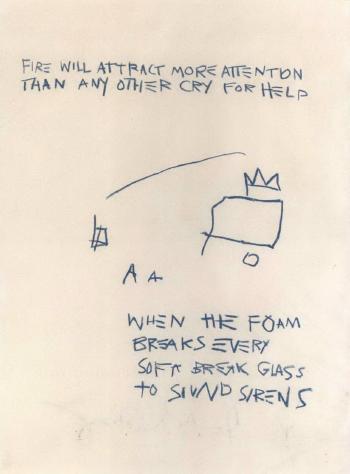 FIRE WILL ATTRACT MORE ATTENTION
THAN ANY OTHER CRY FOR HELP
A A
WHEN THE FOAM
BREAKS EVERY
SOFA BREAK GLASS
TO SOUND SIRENS